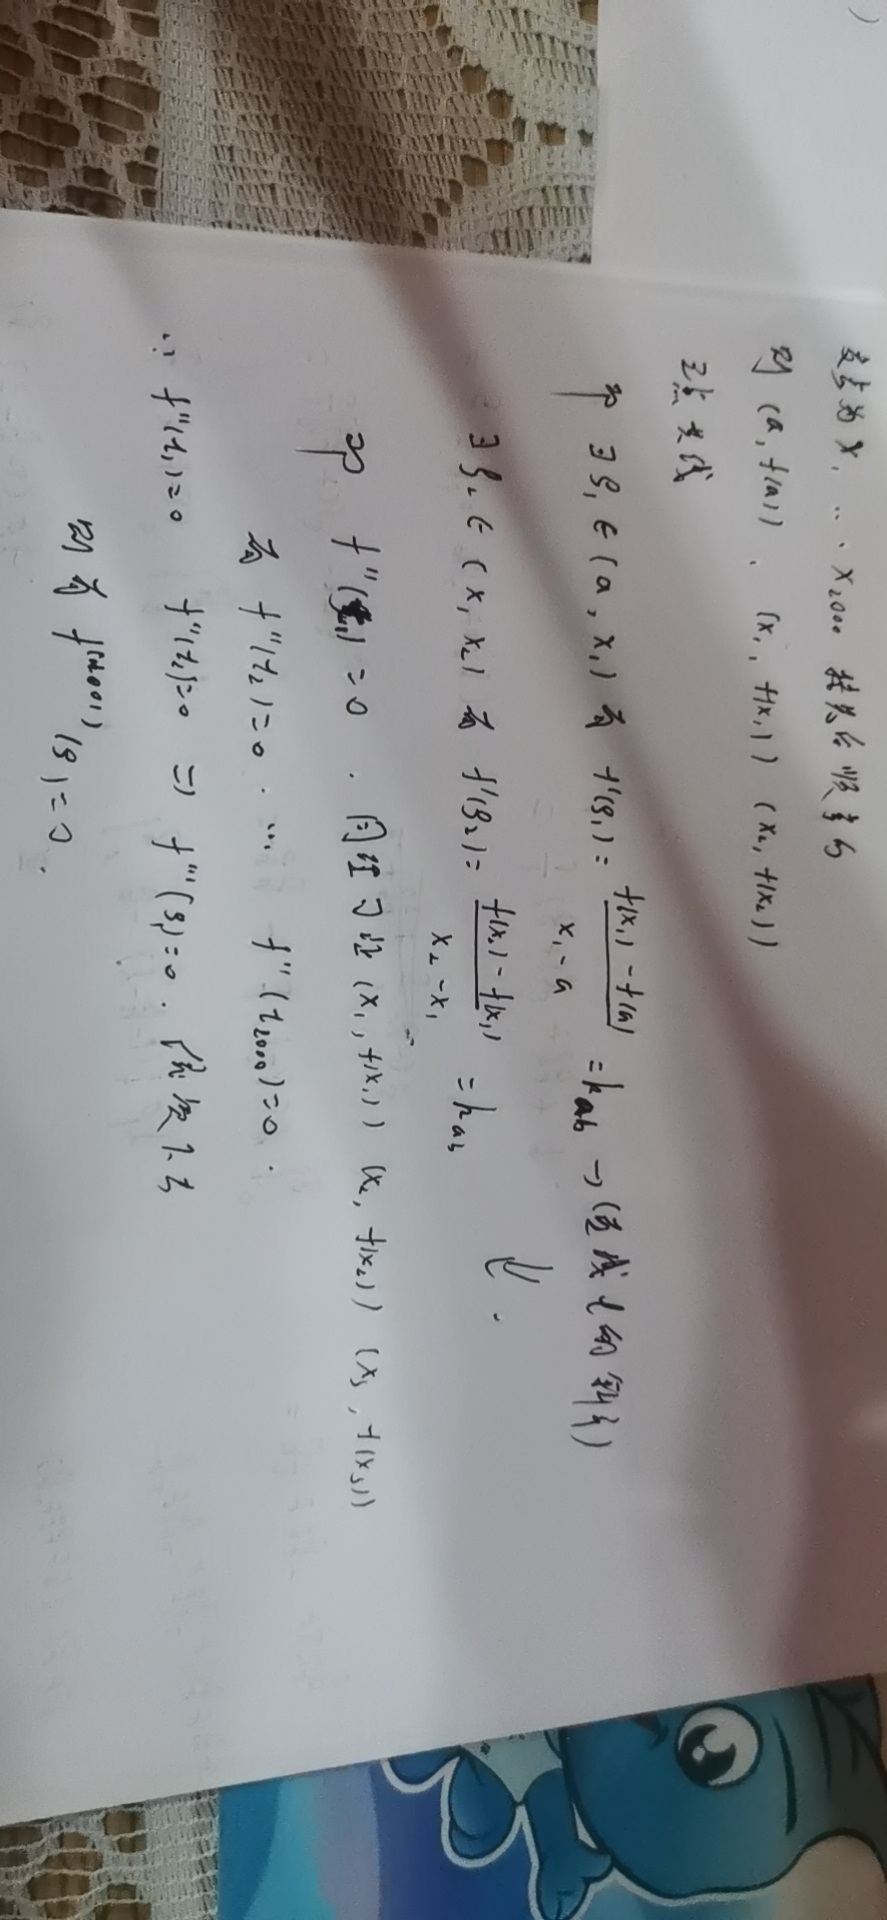 交点为 x₁ ... x₂₀₀₀ 按先后顺序的
则 (a, f(a)) 、 (x₁, f(x₁)) (x₂, f(x₂))
三点共线
即 ∃ ξ₁ ∈ (a, x₁) 有 f'(ξ₁) = \frac{f(x₁) - f(a)}{x₁ - a} = k_{ab} → (直线 l 的斜率)
∃ ξ₂ ∈ (x₁ x₂) 有 f'(ξ₂) = \frac{f(x₂) - f(x₁)}{x₂ - x₁} = k_{ab} ⇓ .
即 f''(t₁) = 0 . 同理可证 (x₁, f(x₁)) (x₂, f(x₂)) (x₃, f(x₃))
有 f''(t₂) = 0 . ... f''(t₂₀₀₀) = 0 .
∵ f''(t₁) = 0 f''(t₂) = 0 ⇒ f'''(ξ₁) = 0 . 依次
则有 f^{(2001)}(ξ) = 0 .